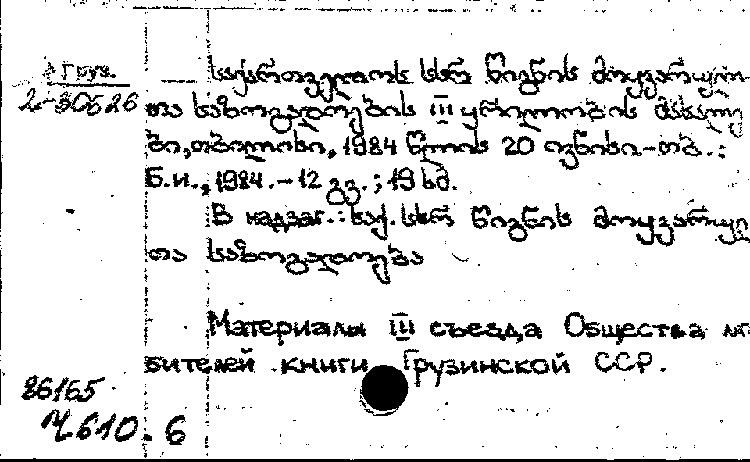 Груз.
2-80626
საქართველოს სსრ წიგნის მოყვარულ-
თა საზოგადოების III ყრილობის მასალე
ბი, თბილისი, 1984 წლის 20 ივნისი.-თბ.:
Б.и., 1984.-12 გვ.; 19 სმ.
В надзаг.: საქ. სსრ წიგნის მოყვარულ
თა საზოგადოება
Материалы III съезда Общества лю
бителей книги Грузинской ССР.
86165
Ч610.6